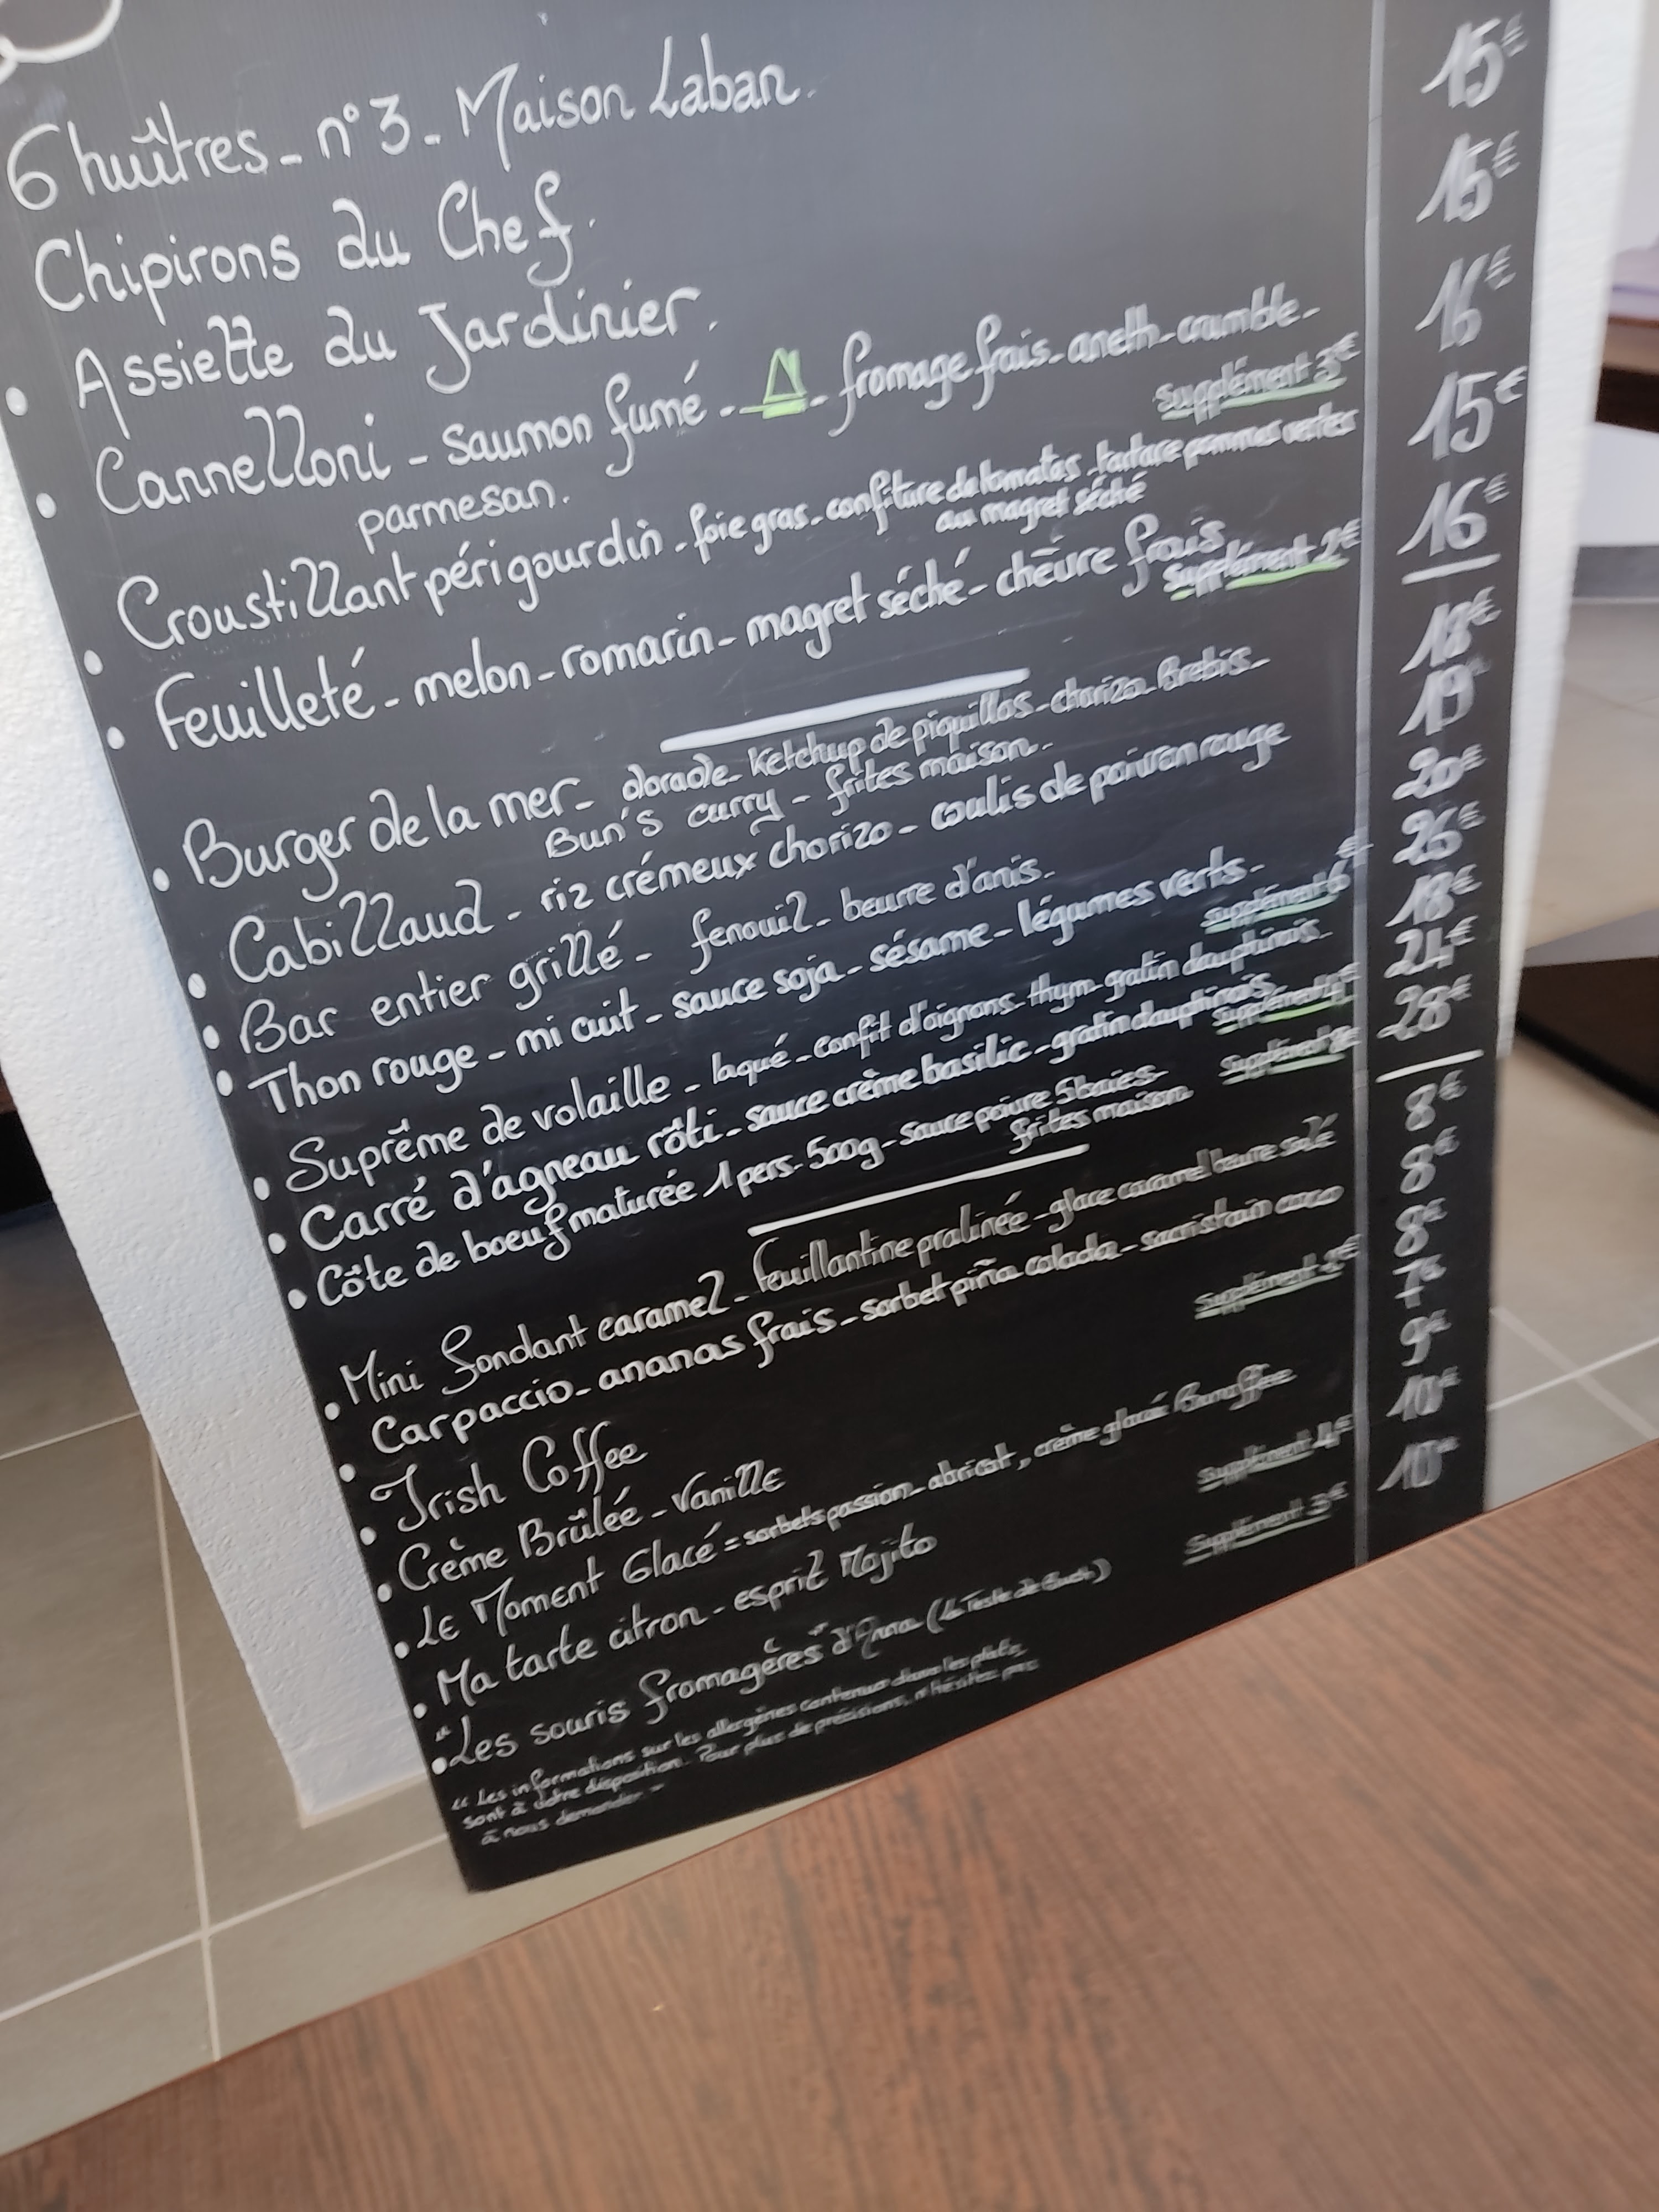 6 huîtres - n°3 - Maison Laban. 15€
Chipirons du Chef. 15€
Assiette du Jardinier. 16€
Cannelloni - saumon fumé - - fromage frais - aneth - crumble - 15€
parmesan. Supplément 3€
Croustillant périgourdin - foie gras - confiture de tomates - tartare pommes vertes 16€
au magret séché
Feuilleté - melon - romarin - magret séché - chèvre frais
Supplément 2€
Burger de la mer - dorade - Ketchup de piquillos - chorizo - Brebis - 18€
Bun's curry - frites maison -
Cabillaud - riz crémeux chorizo - coulis de poivron rouge 19€
Bar entier grillé - fenouil - beurre d'anis. 20€
Thon rouge - mi cuit - sauce soja - sésame - légumes verts - 26€
Supplément 6€
Suprême de volaille - laqué - confit d'oignons - thym - gratin dauphinois - 18€
Carré d'agneau rôti - sauce crème basilic - gratin dauphinois 24€
Supplément
Côte de boeuf maturée 1 pers - 500g - sauce poivre 5 baies - 28€
frites maison Supplément
Mini fondant caramel - feuillantine pralinée - glace caramel beurre salé 8€
Carpaccio - ananas frais - sorbet piña colada - coco 8€
Irish Coffee 8€
Supplément
Crème Brûlée - Vanille 7€
Le Moment Glacé = sorbets passion - abricot, crème glacée 9€
Ma tarte citron - esprit Mojito 10€
Supplément 4€
"Les souris fromagères" d'Anna (La Teste de Buch) 10€
Supplément 3€
"Les informations sur les allergènes contenus dans les plats,
sont à votre disposition. Pour plus de précisions, n'hésitez pas
à nous demander."